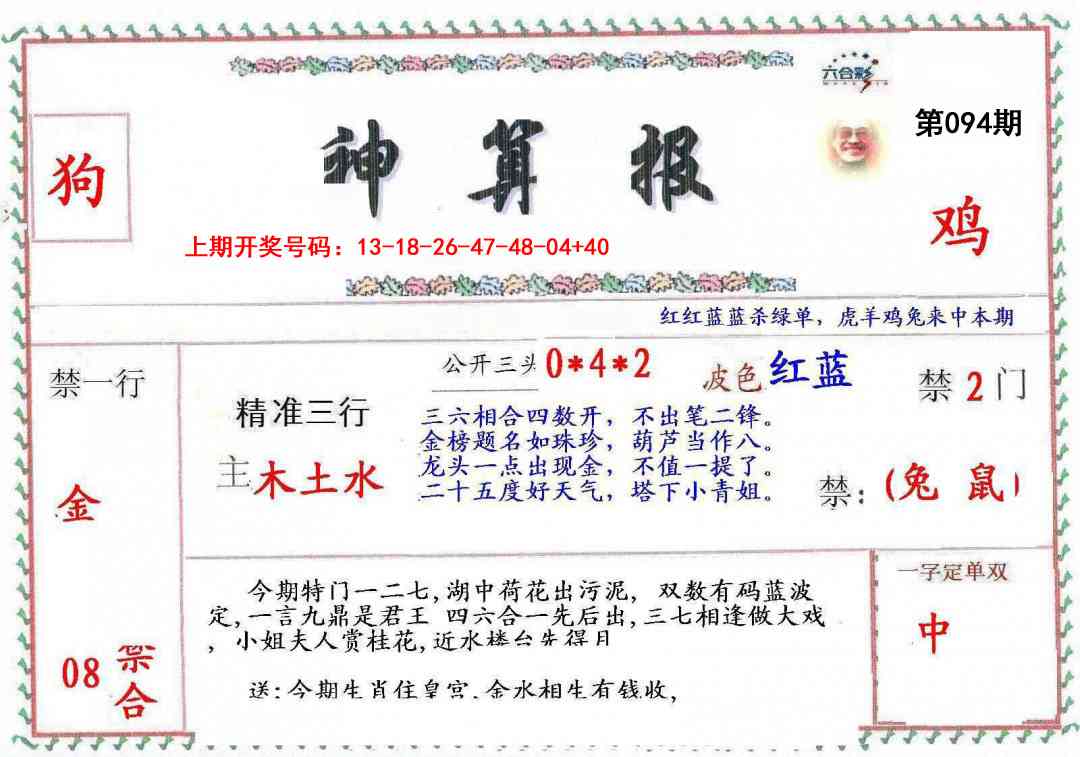 六合彩
第094期
狗
神算报
鸡
上期开奖号码：13-18-26-47-48-04+40
红红蓝蓝杀绿单，虎羊鸡兔来中本期
禁一行
公开三头 0*4*2
波色 红蓝
禁 2 门
精准三行
三六相合四数开，不出笔二锋。
金榜题名如珠珍，葫芦当作八。
龙头一点出现金，不值一提了。
二十五度好天气，塔下小青姐。
主 木土水
金
禁：(兔 鼠)
今期特门一二七,湖中荷花出污泥, 双数有码蓝波
定,一言九鼎是君王 四六合一先后出,三七相逢做大戏
, 小姐夫人赏桂花,近水楼台先得月
送:今期生肖住皇宫.金水相生有钱收,
一字定单双
中
08 禁
合